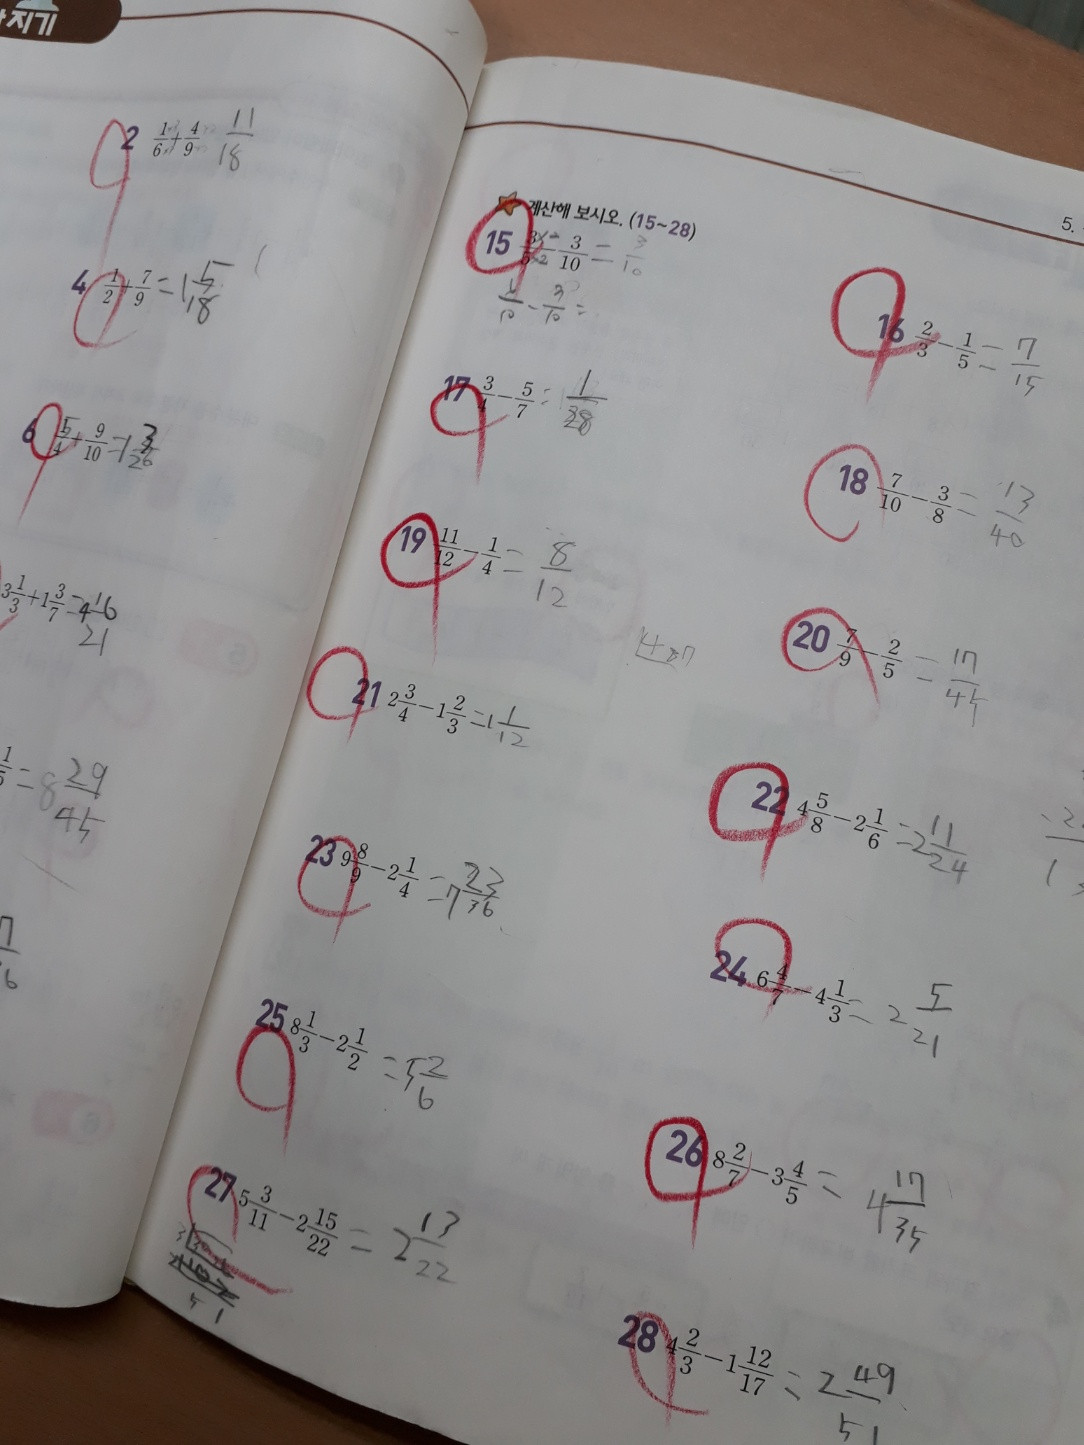 지기
2 1/6 + 4/9 11/18
4 1/2 + 7/9 = 1 5/18
+ 9/10 = 1
3 1/3 + 1 3/7 = 4 16/21
1/5 = 8 29/45
계산해 보시오. (15~28)
5.
15 3/5 - 3/10 = 3/10
16 2/3 - 1/5 = 7/15
17 3/4 - 5/7 = 1/28
18 7/10 - 3/8 = 13/40
19 11/12 - 1/4 = 8/12
20 7/9 - 2/5 = 17/45
21 2 3/4 - 1 2/3 = 1 1/12
22 4 5/8 - 2 1/6 = 2 11/24
23 9 8/9 - 2 1/4 = 7 23/36
24 6 4/7 - 4 1/3 = 2 5/21
25 8 1/3 - 2 1/2 = 5 2/6
26 8 2/7 - 3 4/5 = 4 17/35
27 5 3/11 - 2 15/22 = 2 13/22
51
28 4 2/3 - 1 12/17 = 2 49/51